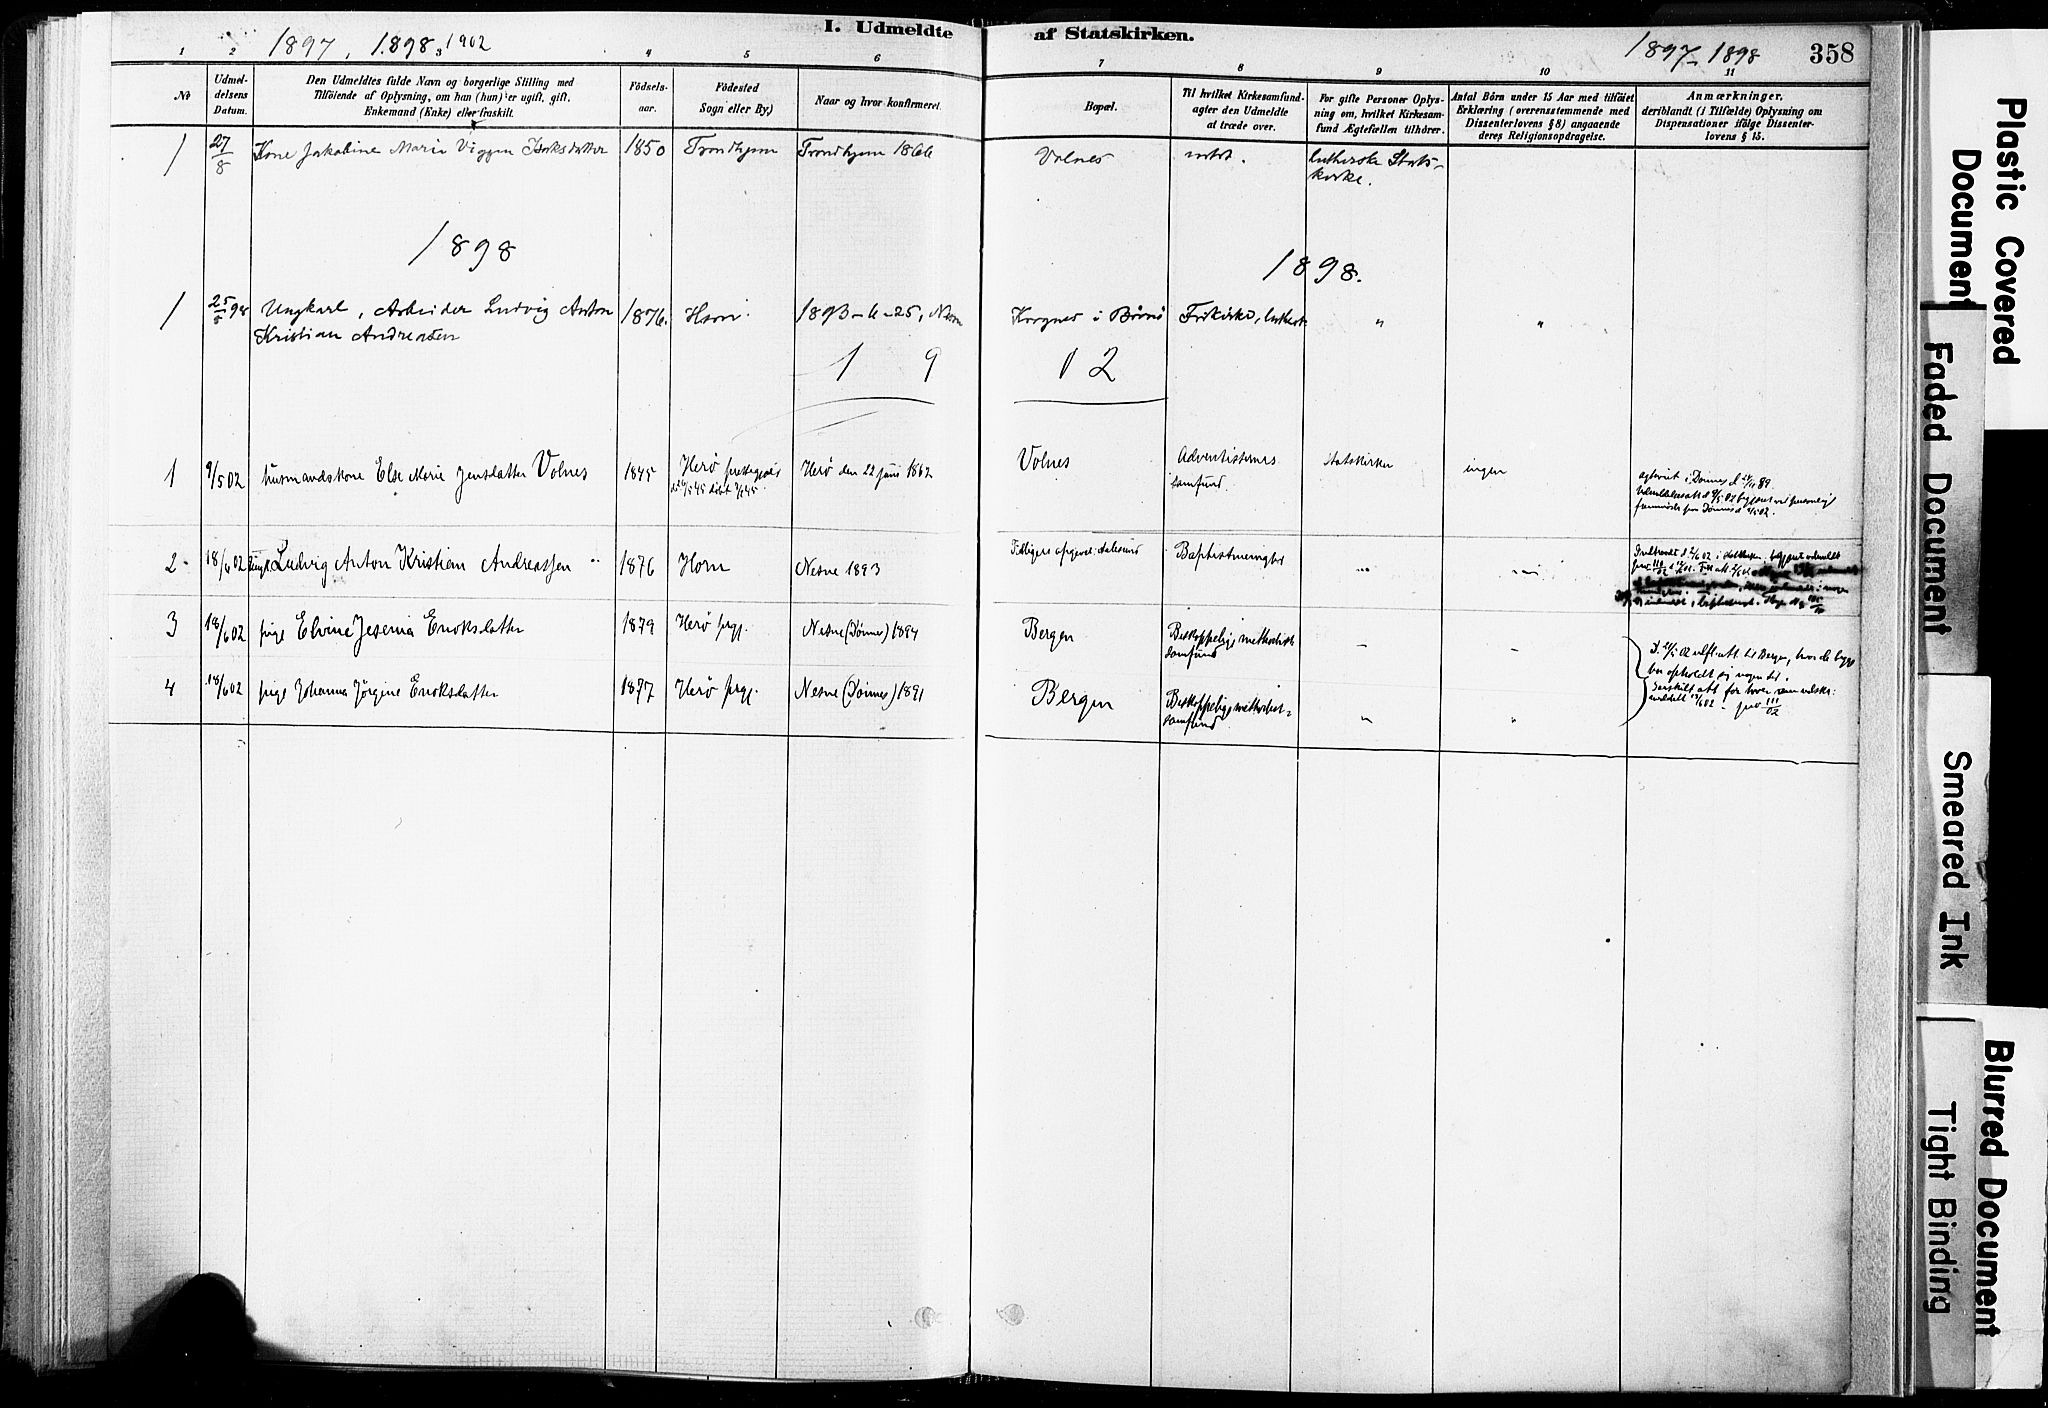 I. Udmeldte af Statskirken.
1897, 1898, 1902
1897-1898
358
1 2 3 4 5 6 7 8 9 10 11
No
Udmeldelsens Datum.
Den Udmeldtes fulde Navn og borgerlige Stilling med
Tilföiende af Oplysning, om han (hun) er ugift, gift,
Enkemand (Enke) eller fraskilt.
Födselsaar.
Födested
Sogn eller By.)
Naar og hvor konfirmeret.
Bopæl.
Til hvilket Kirkesamfund
agter den Udmeldte
at træde over.
For gifte Personer Oplysning
om, hvilket Kirkesamfund
Ægtefællen tilhörer.
Antal Börn under 15 Aar med tilföiet
Erklæring (overensstemmende med
Dissenterlovens § 8) angaaende
deres Religionsopdragelse.
Anmærkninger,
deriblandt (i Tilfælde) Oplysning om
Dispensationer ifölge Dissenterlovens
§ 15.
1 27/8 Kone Jakobine Marie Viggen 1850 Trondhjem Trondhjem 1866 Volnes intet. lutherske Stats-
kirke.
1898 1898.
1 25/8 98 Ungkarl, Arbeider Ludvig Anton 1876. Horn 1893-6-25, Frikirke, luthersk " "
Kristian Andreassen
1 9 12
1 9/5 02 husmandskone Else Marie Jensdatter Volnes 1845 Herø Herø den 22 juni 1862 Volnes Adventisternes Statskirken ingen
samfund.
2 18/6 02 Ludvig Anton Kristian Andreassen 1876 Horn Nesne 1893 Baptistmenighed
3 18/6 02 pige Elvine Jesenia Eriksdatter 1879 Herø prgj. Nesne (Dønnes) 1894 Bergen Biskoppelige methodist
samfund - -
4 18/6 02 pige Johanna Jörgine Eriksdatter 1877 Herø prgj. Nesne (Dønnes) 1891 Bergen Biskoppelige methodist-
samfund " "
Plastic Covered
Document
Faded Document
Smeared Ink
Blurred Document
Tight Binding